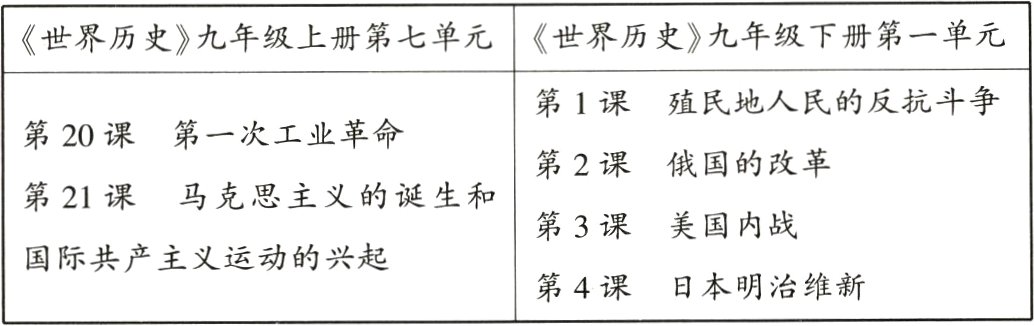 《世界历史》九年级上册第七单元
《世界历史》九年级下册第一单元
第20课 第一次工业革命
第21课 马克思主义的诞生和
国际共产主义运动的兴起
第1课 殖民地人民的反抗斗争
第2课 俄国的改革
第3课 美国内战
第4课 日本明治维新